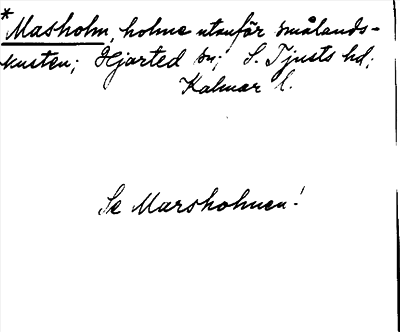 *Masholm, holme utanför smålands-
kusten; Hjorted sn; S. Tjusts hd;
Kalmar l.
Se Marsholmen!